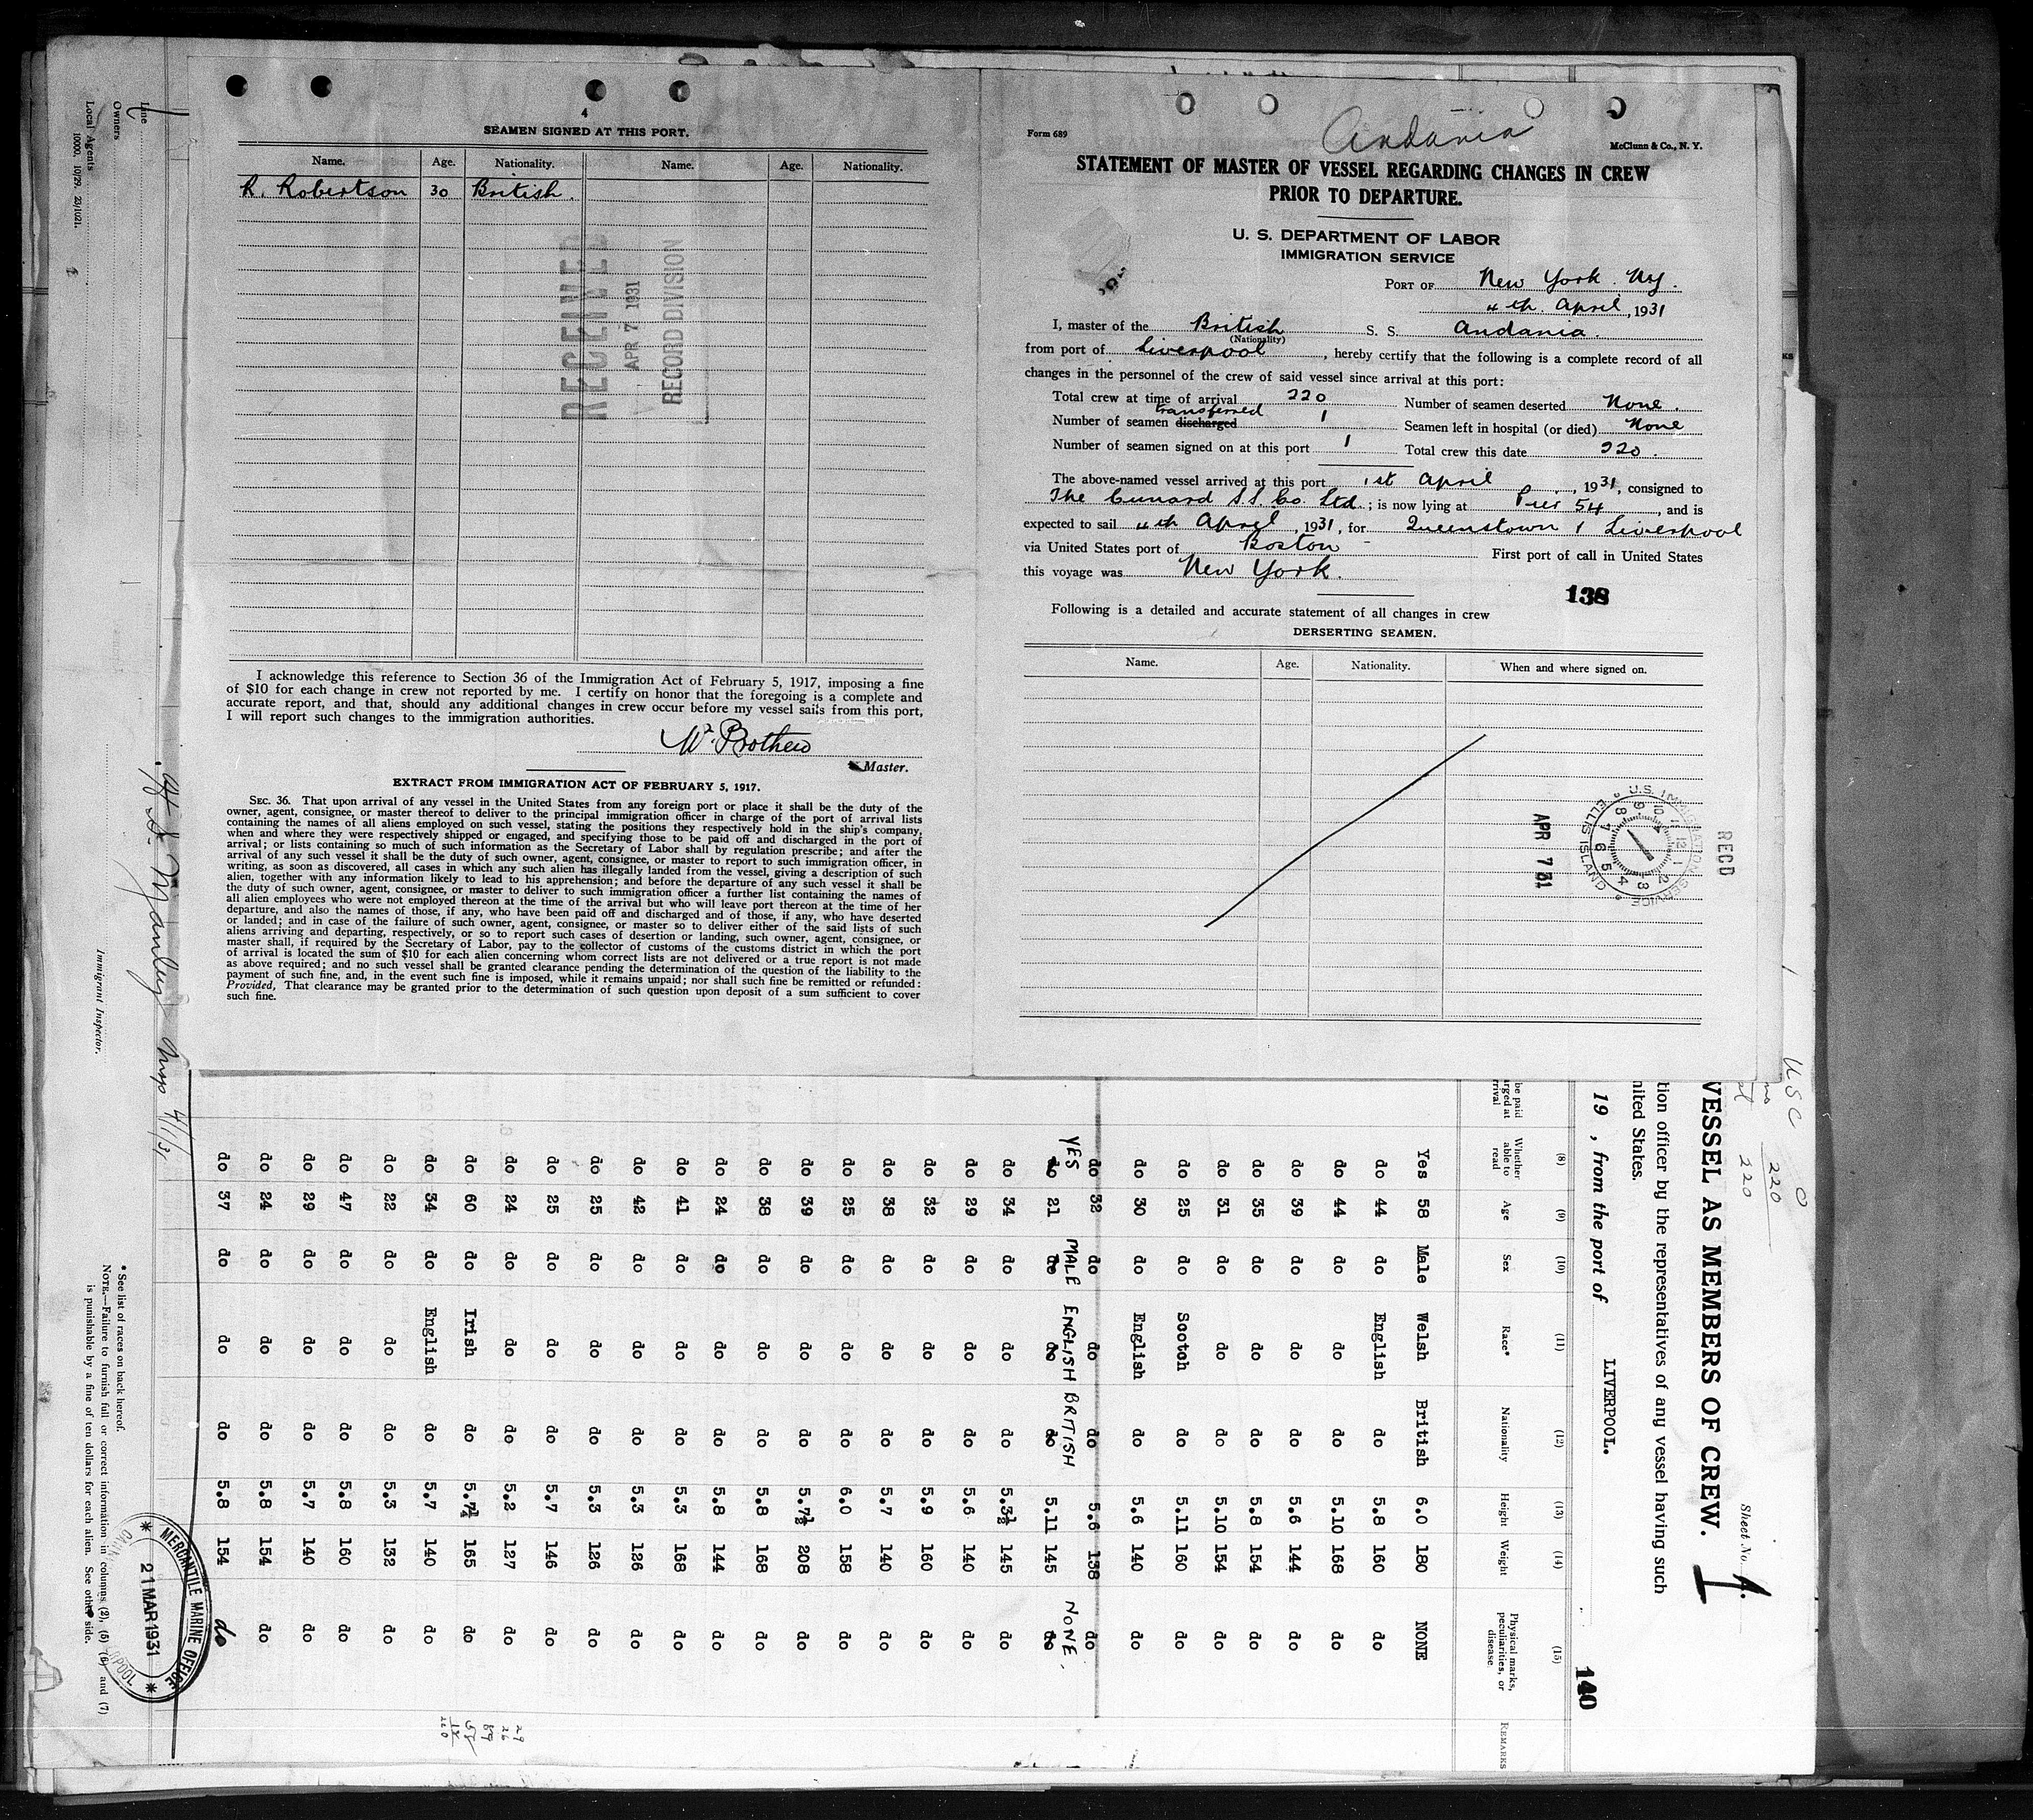 4
SEAMEN SIGNED AT THIS PORT.
Name. Age. Nationality. Name. Age. Nationality.
R. Robertson 30 British.
RECEIVED
APR 7 1931
RECORD DIVISION
I acknowledge this reference to Section 36 of the Immigration Act of February 5, 1917, imposing a fine
of $10 for each change in crew not reported by me. I certify on honor that the foregoing is a complete and
accurate report, and that, should any additional changes in crew occur before my vessel sails from this port,
I will report such changes to the immigration authorities.
Master.
EXTRACT FROM IMMIGRATION ACT OF FEBRUARY 5, 1917.
SEC. 36. That upon arrival of any vessel in the United States from any foreign port or place it shall be the duty of the
owner, agent, consignee, or master thereof to deliver to the principal immigration officer in charge of the port of arrival lists
containing the names of all aliens employed on such vessel, stating the positions they respectively hold in the ship's company,
when and where they were respectively shipped or engaged, and specifying those to be paid off and discharged in the port of
arrival; or lists containing so much of such information as the Secretary of Labor shall by regulation prescribe; and after the
arrival of any such vessel it shall be the duty of such owner, agent, consignee, or master to report to such immigration officer, in
writing, as soon as discovered, all cases in which any such alien has illegally landed from the vessel, giving a description of such
alien, together with any information likely to lead to his apprehension; and before the departure of any such vessel it shall be
the duty of such owner, agent, consignee, or master to deliver to such immigration officer a further list containing the names of
all alien employees who were not employed thereon at the time of the arrival but who will leave port thereon at the time of her
departure, and also the names of those, if any, who have been paid off and discharged and of those, if any, who have deserted
or landed; and in case of the failure of such owner, agent, consignee, or master so to deliver either of the said lists of such
aliens arriving and departing, respectively, or so to report such cases of desertion or landing, such owner, agent, consignee, or
master shall, if required by the Secretary of Labor, pay to the collector of customs of the customs district in which the port
of arrival is located the sum of $10 for each alien concerning whom correct lists are not delivered or a true report is not made
as above required; and no such vessel shall be granted clearance pending the determination of the question of the liability to the
payment of such fine, and, in the event such fine is imposed, while it remains unpaid; nor shall such fine be remitted or refunded:
Provided, That clearance may be granted prior to the determination of such question upon deposit of a sum sufficient to cover
such fine.
Andania
Form 689
McClunn & Co., N. Y.
STATEMENT OF MASTER OF VESSEL REGARDING CHANGES IN CREW
PRIOR TO DEPARTURE.
U. S. DEPARTMENT OF LABOR
IMMIGRATION SERVICE
PORT OF New York. Ny.
4th. April, 1931
I, master of the British S. S. Andania.
(Nationality)
from port of Liverpool, hereby certify that the following is a complete record of all
changes in the personnel of the crew of said vessel since arrival at this port:
Total crew at time of arrival 220 Number of seamen deserted None.
transferred
Number of seamen discharged 1 Seamen left in hospital (or died) None
Number of seamen signed on at this port 1 Total crew this date 220.
The above-named vessel arrived at this port 1st April, 1931, consigned to
The Cunard S.S. Co. Ltd.; is now lying at Pier 54, and is
expected to sail 4th April, 1931, for Queenstown & Liverpool
via United States port of Boston First port of call in United States
this voyage was New York.
138
Following is a detailed and accurate statement of all changes in crew
DERSERTING SEAMEN.
Name. Age. Nationality. When and where signed on.
RECD
U.S. IMMIGRATION SERVICE ELLIS ISLAND
APR 7 31
Sheet No. 1.
1
VESSEL AS MEMBERS OF CREW.
tion officer by the representatives of any vessel having such
nited States.
19 , from the port of LIVERPOOL.
140
USC 0
220
220
(8) (9) (10) (11) (12) (13) (14) (15)
be paid
arged at
rrival
Whether able to read Age Sex Race* Nationality Height Weight Physical marks, peculiarities, or disease REMARKS
Yes 58 Male Welsh British 6.0 180 NONE
do 44 do English do 5.8 160 do
do 44 do do do 5.10 168 do
do 39 do do do 5.6 144 do
do 35 do do do 5.8 154 do
do 31 do do do 5.10 154 do
do 25 do Scotch do 5.11 160 do
do 30 do English do 5.6 140 do
do 32 do do do 5.6 138 do
YES MALE ENGLISH BRITISH NONE
do 21 do do do 5.11 145 do
do 34 do do do 5.3½ 145 do
do 29 do do do 5.6 140 do
do 32 do do do 5.9 160 do
do 38 do do do 5.7 140 do
do 25 do do do 6.0 158 do
do 39 do do do 5.7½ 208 do
do 38 do do do 5.8 168 do
do 24 do do do 5.8 144 do
do 41 do do do 5.3 168 do
do 42 do do do 5.3 126 do
do 25 do do do 5.3 126 do
do 25 do do do 5.7 146 do
do 24 do do do 5.2 127 do
do 60 do Irish do 5.7¼ 165 do
do 34 do English do 5.7 140 do
do 22 do do do 5.3 132 do
do 47 do do do 5.8 160 do
do 29 do do do 5.7 140 do
do 24 do do do 5.8 154 do
do 37 do do do 5.8 154 do
MERCANTILE MARINE OFFICE
21 MAR 1931
Immigrant Inspector.
* See list of races on back hereof.
NOTE.—Failure to furnish full or correct information in columns (2), (5) (6) and (7)
is punishable by a fine of ten dollars for each alien. See other side.
Line
Owners
Local Agents